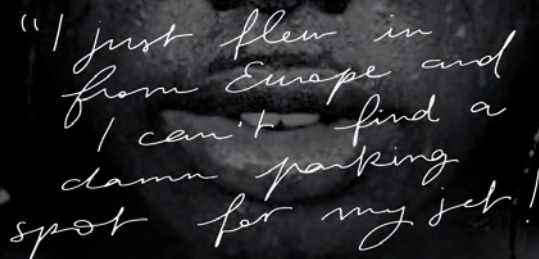 "I just flew in
from Europe and
I can't find a
damn parking
spot for my jet!